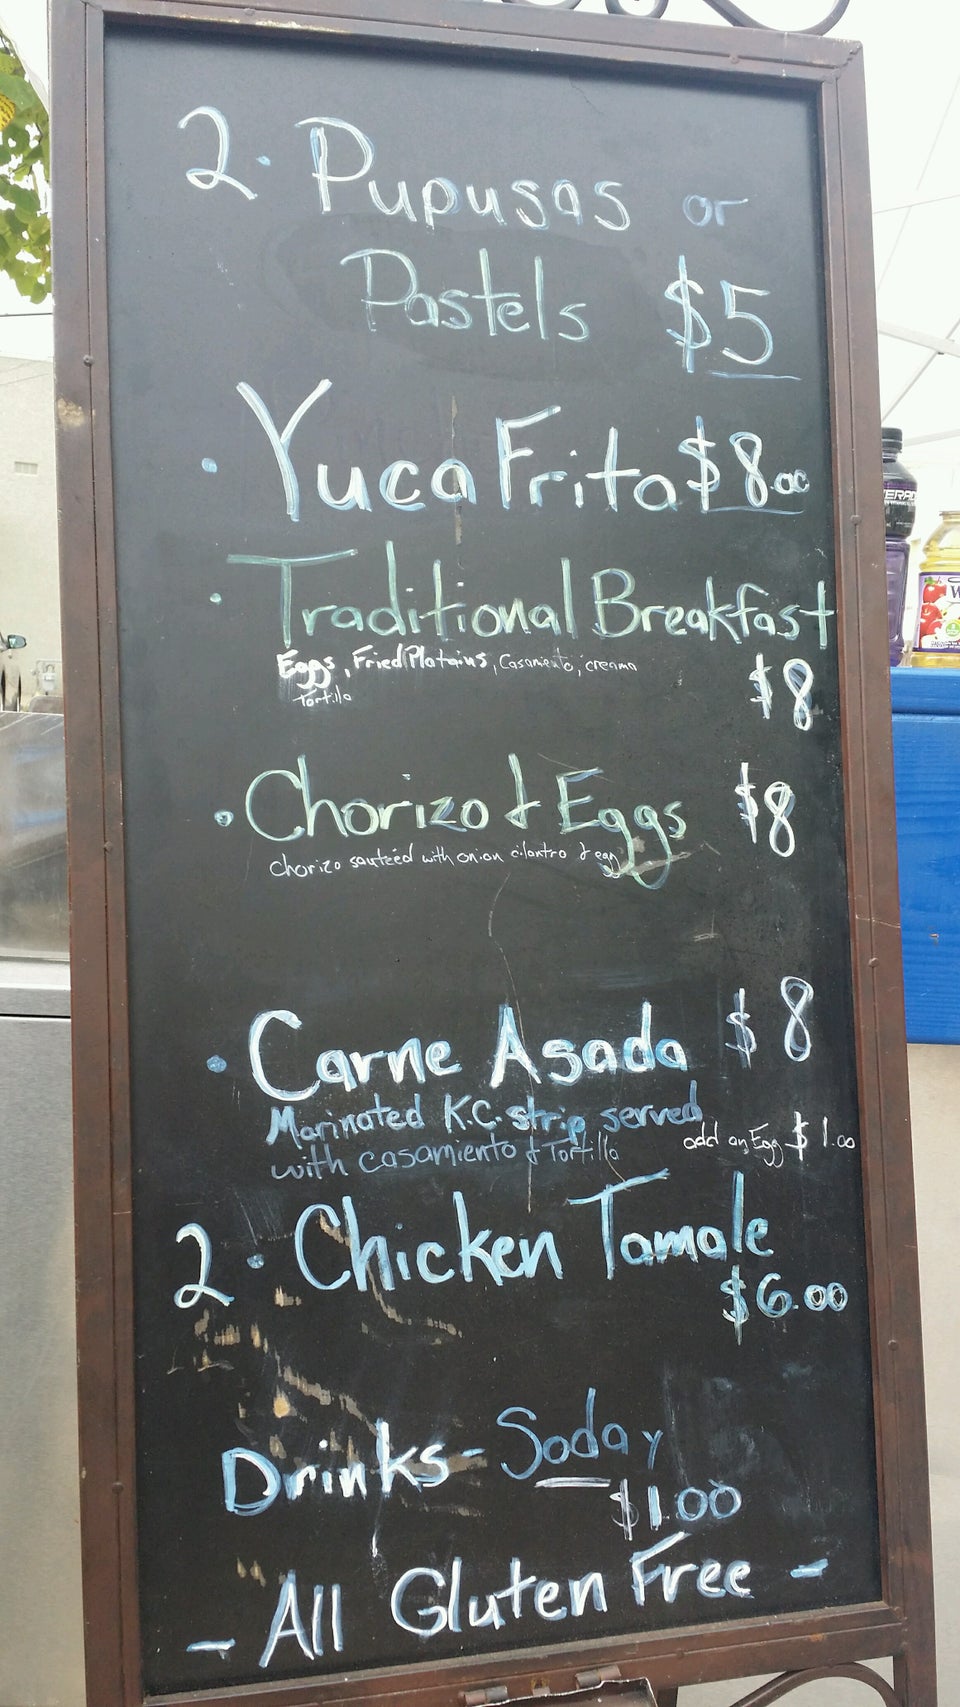 2. Pupusas or
Pastels $5
• Yuca Frita $8.00
• Traditional Breakfast
Eggs, Fried Platains, Casamiento, creama
Tortilla
$8
• Chorizo & Eggs $8
chorizo sauteéd with onion cilantro & egg
• Carne Asada $8
Marinated K.C. strip served
with casamiento & Tortilla
add an Egg $1.00
2. Chicken Tamale
$6.00
Drinks - Soda y
$1.00
- All Gluten Free -
ERADE
W